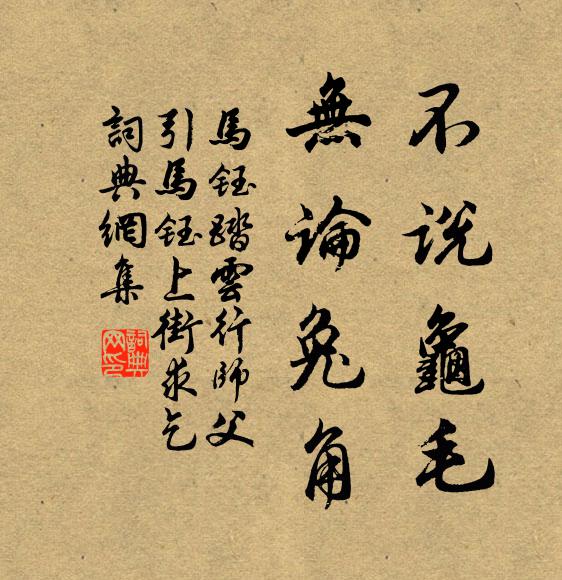 不説龜毛
無論兔角
馬鈺踏雲行師父
引馬鈺上街求乞
詞典網集
詞典
网印